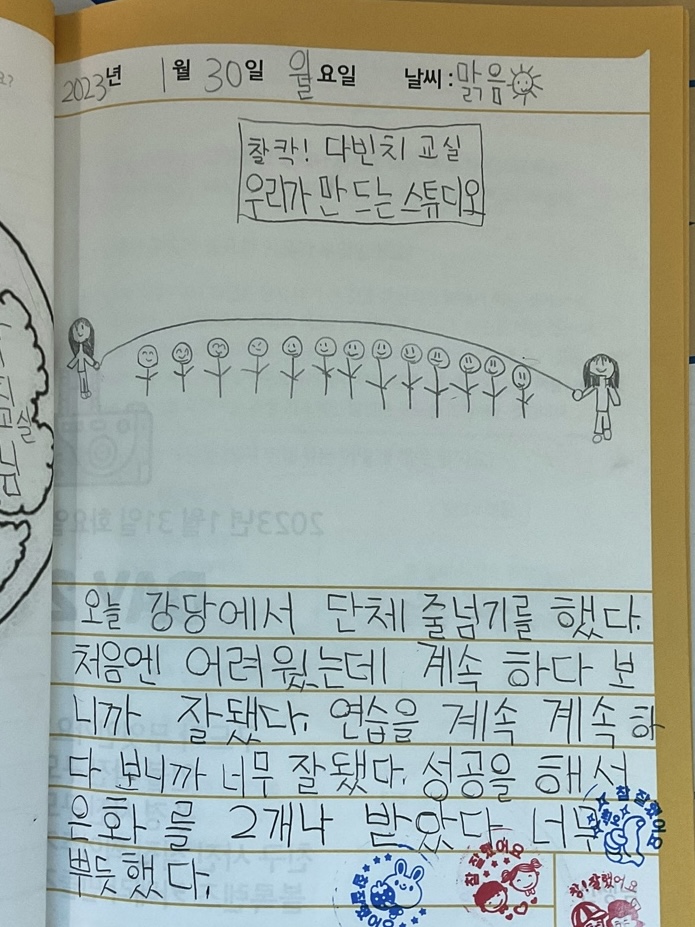 2023년 1월 30일 월요일 날씨: 맑음
찰칵! 다빈치 교실
우리가 만드는 스튜디오
오늘 강당에서 단체 줄넘기를 했다.
처음엔 어려웠는데 계속 하다 보
니까 잘됐다. 연습을 계속 계속 하
다 보니까 너무 잘됐다. 성공을 해서
은화를 2개나 받았다 너무
뿌듯했다.
참 잘했어요
참 잘했어요
참! 잘했어요
2023년 1월 31일 화요일
DAY 2